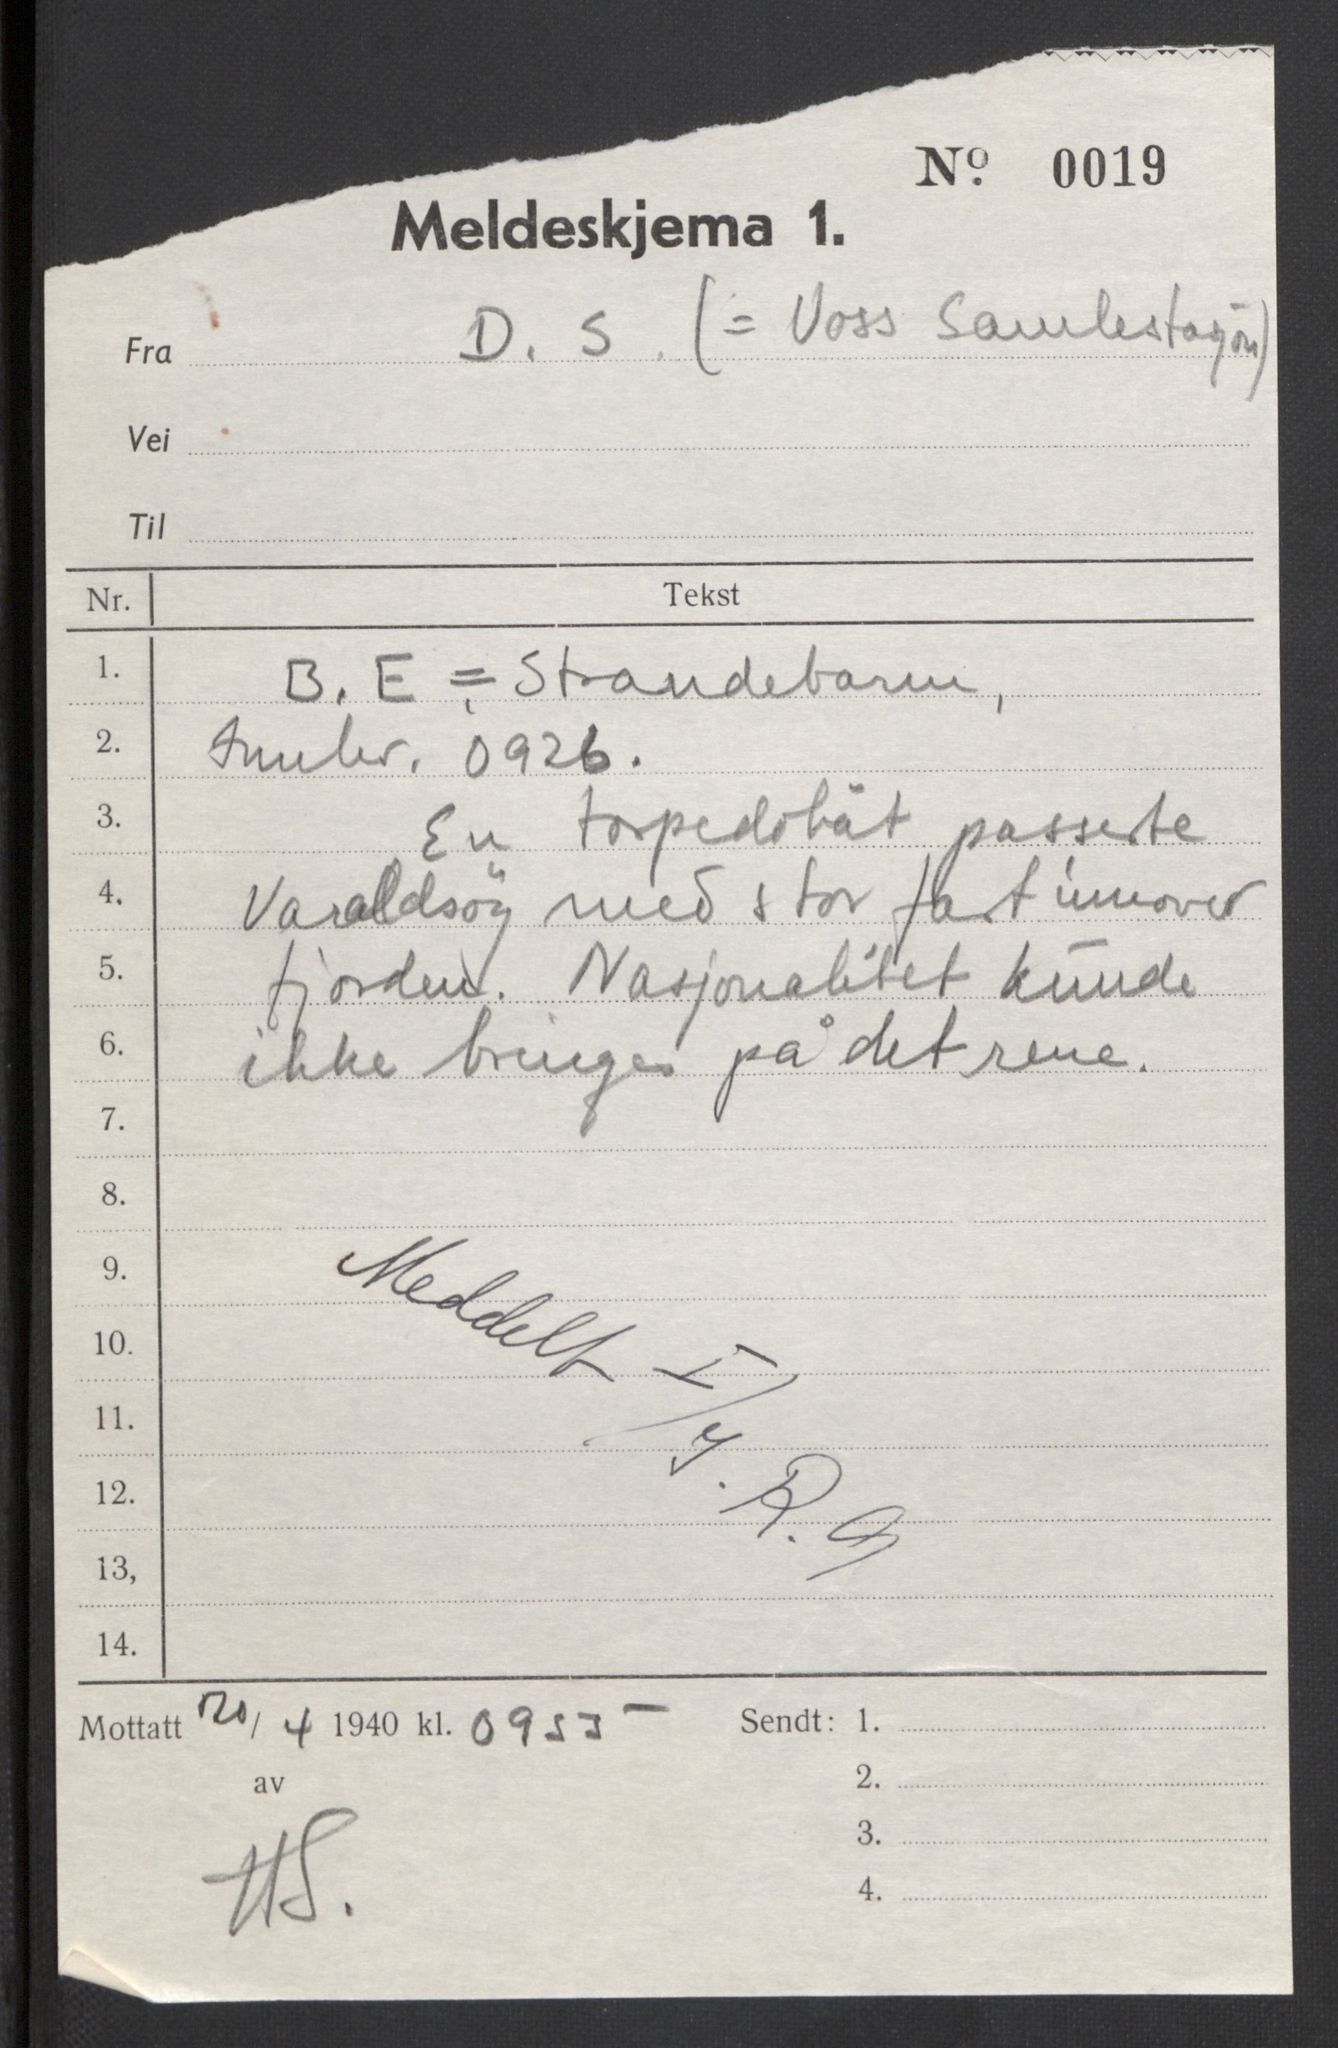 Nº. 0019
Meldeskjema 1.
Fra D. S. (= Voss Samlestasjon)
Vei
Til
Nr. Tekst
1. B. E = Strandebarm,
2. Innlev. 0926.
3. En torpedobåt passerte
4. Varaldsöy med stor fart innover
5. fjorden. Nasjonalitet kunde
6. ikke bringes på det rene.
7.
8.
9. Meddelt
10. I/
11. 4.
12. R.
13,
14.
Mottatt 20/4 1940 kl. 0955 Sendt: 1.
av 2.
HS. 3.
4.